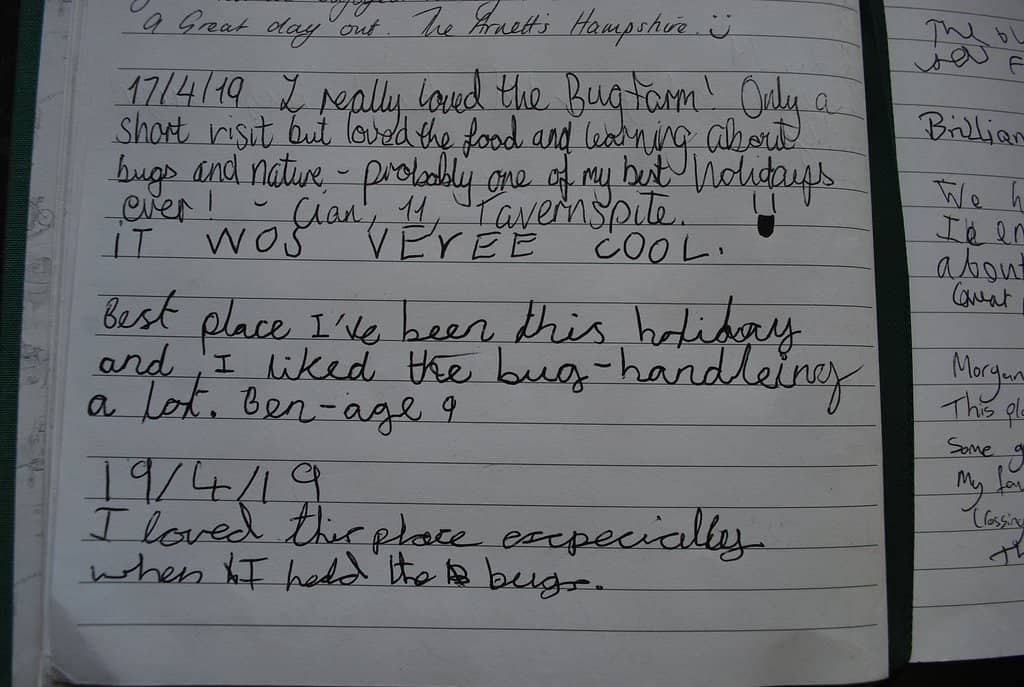 a Great day out. The Arnett's Hampshire.
17/4/19 I really loved the Bugfarm! Only a
short visit but loved the food and learning about
bugs and nature - probably one of my best holidays
ever! - Cian, 11, Tavernspite.
iT WOS VEREE COOL.
Best place I've been this holiday
and, I liked the bug-handleing
a lot. Ben-age 9
19/4/19
I loved this place escpecially
when I held the bugs.
The
Brillian
We h
I'd en
about
Morgan
This pla
Some g
My fav